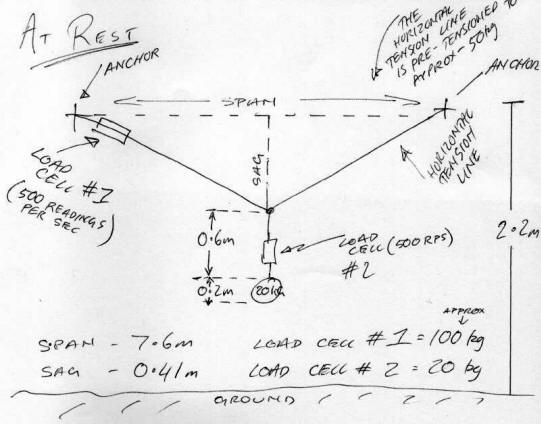 AT REST
ANCHOR
THE
HORIZONTAL
TENSION LINE
IS PRE-TENSIONED TO
APPROX - 50kg
ANCHOR
SPAN
SAG
HORIZONTAL
TENSION
LINE
LOAD
CELL #1
(500 READINGS
PER SEC)
0.6m
LOAD
CELL (500 RPS)
#2
2.2m
0.2m
20kg
APPROX
SPAN - 7.6m
LOAD CELL #1 = 100kg
SAG - 0.41m
LOAD CELL #2 = 20kg
GROUND